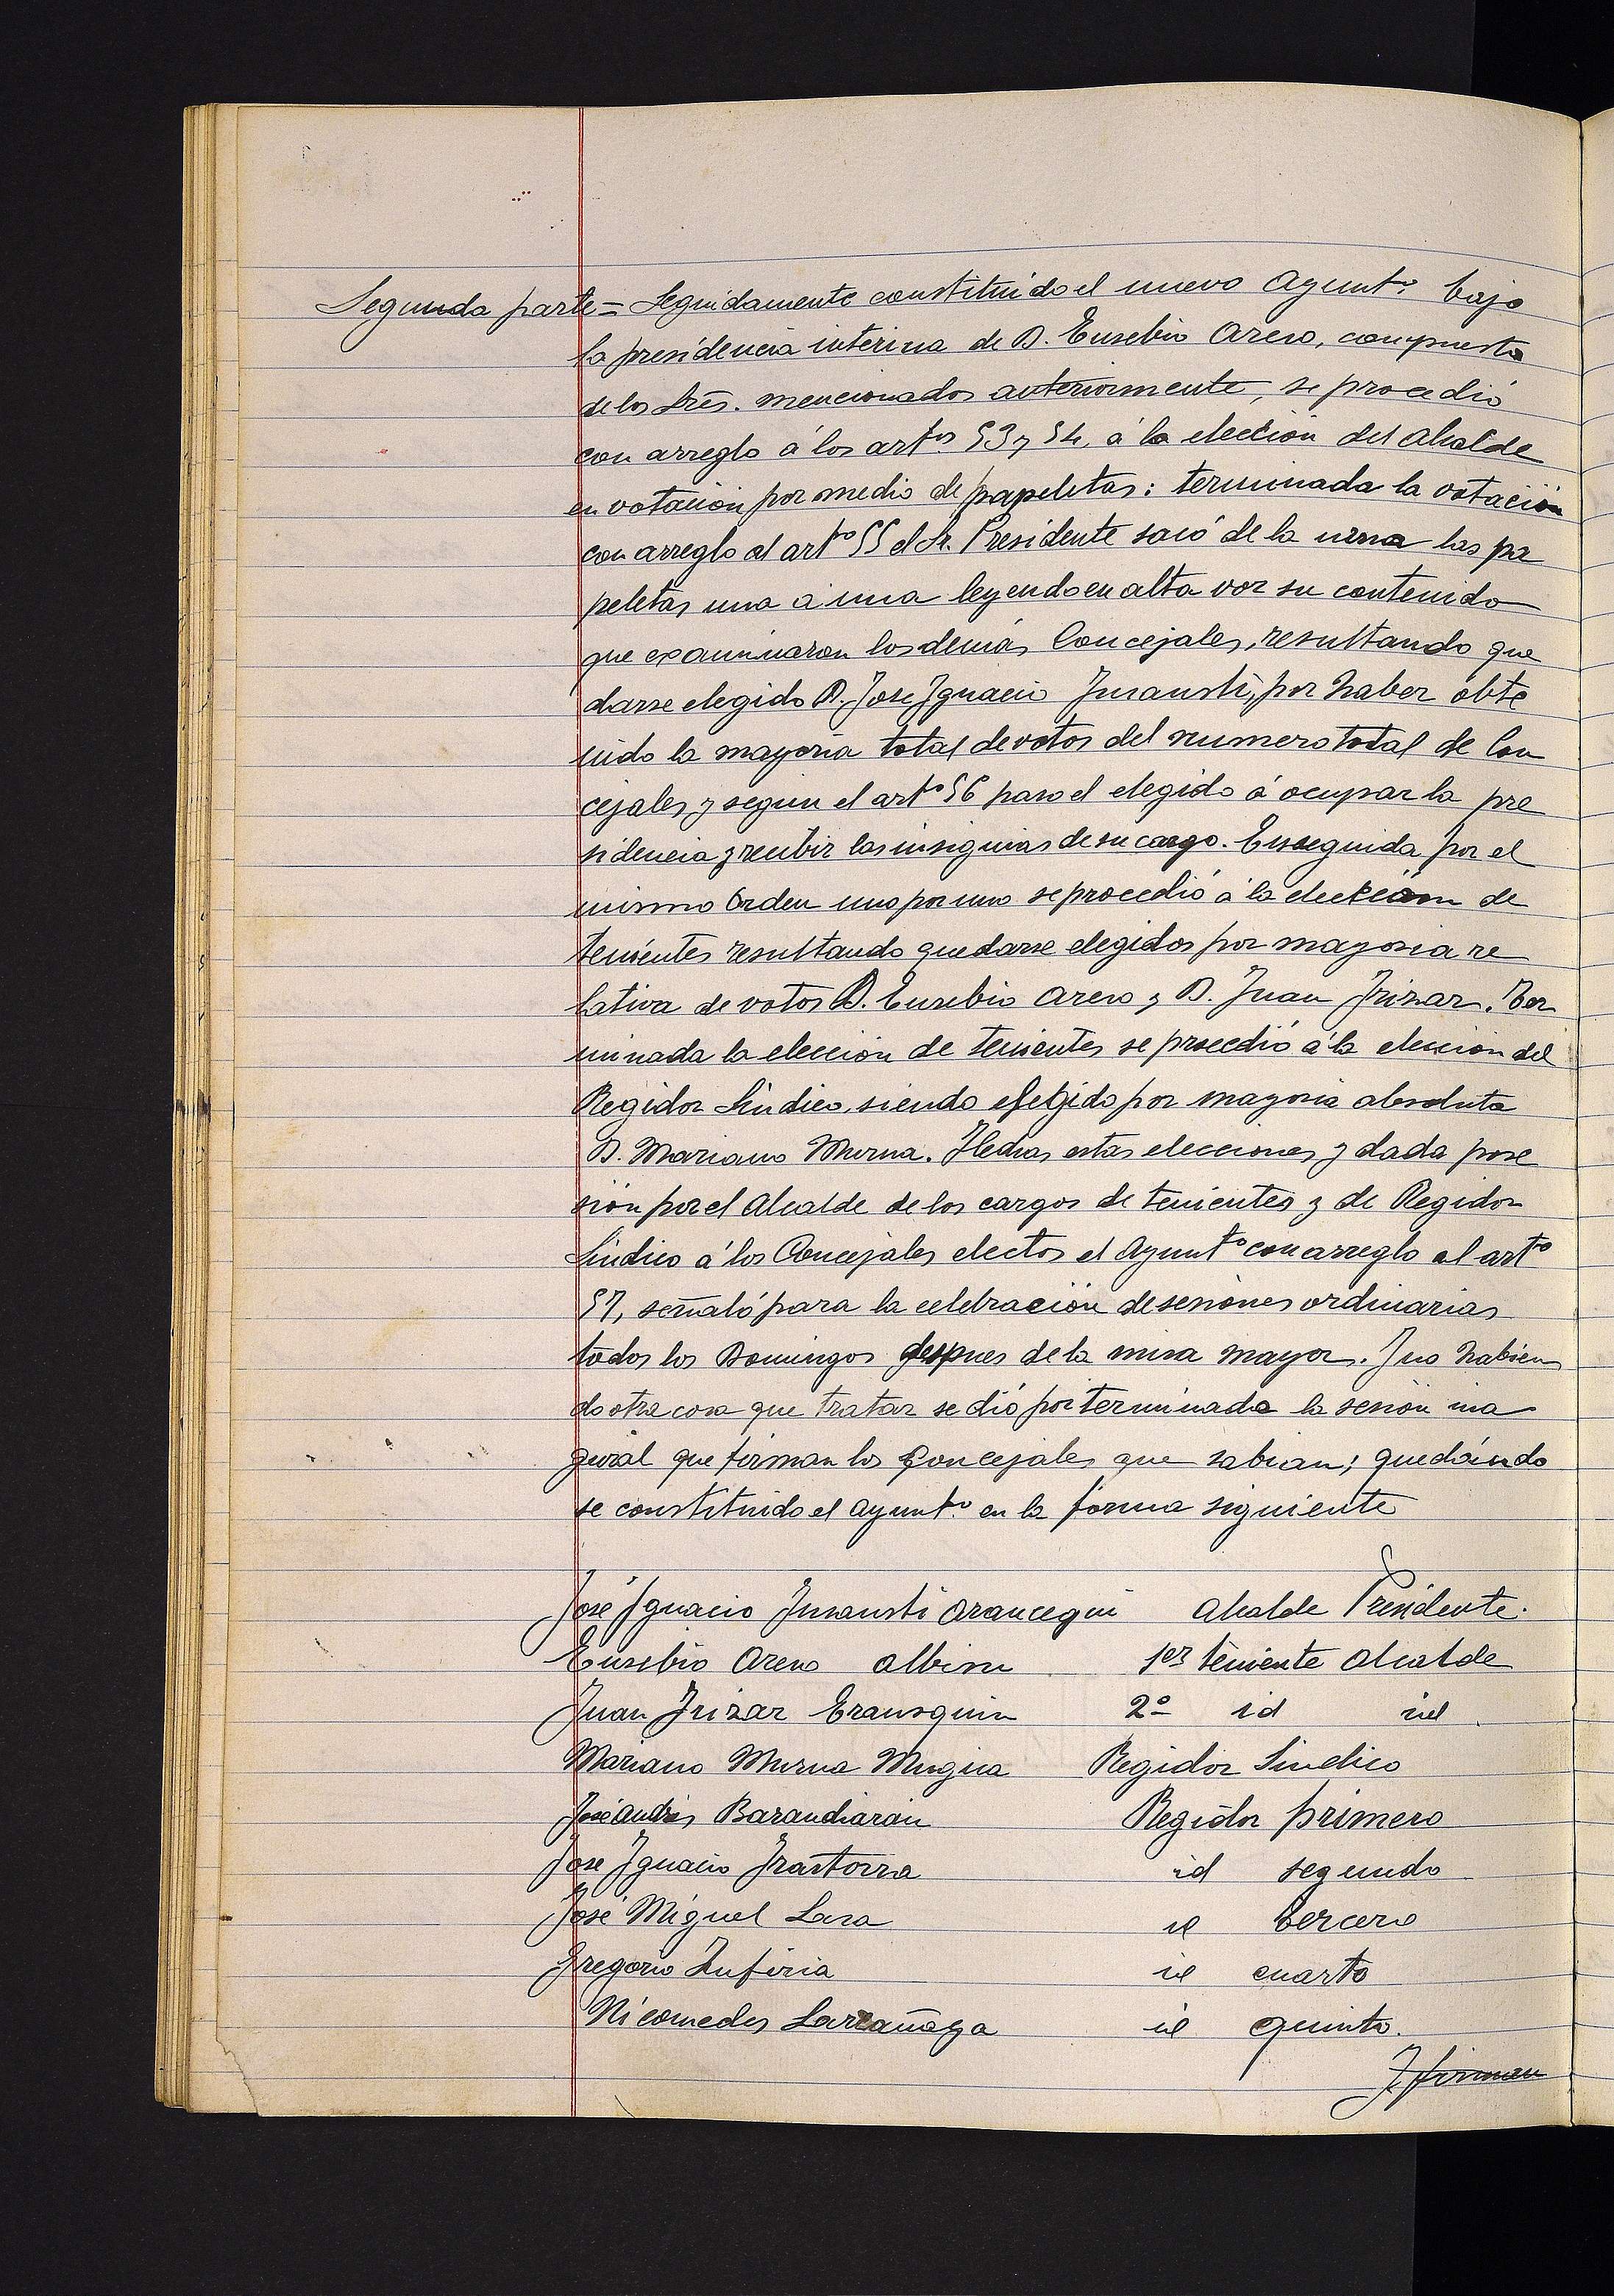 Segunda parte = Seguidamente constituido el nuevo Ayuntº bajo
la presidencia interina de D. Eusebio Areso, compuesta
de los Sres. mencionados anteriormente, se procedió
con arreglo á los artos 53 y 54, á la elección del Alcalde
en votación por medio de papeletas: terminada la votación
con arreglo al artto 55 el Sr. Presidente sacó de la urna las pa
peletas una á una leyendo en alta voz su contenido
que examinaron los demás Concejales, resultando que
darse elegido D. Jose Ignacio Insausti, por haber obte
nido la mayoria total de votos del numero total de Con
cejales, y segun el artº 56 paso el elegido á ocupar la pre
sidencia y recibir las insignias de su cargo. Enseguida por el
mismo Orden uno por uno se procedió á la elección de
tenientes resultando quedarse elegidos por mayoria re
lativa de votos D. Eusebio Areso y D. Juan Irizar. Ter
minada la elección de tenientes se procedió á la elección del
Regidor Sindico, siendo elegido por mayoria absoluta
D. Mariano Murua. Hechas estas elecciones y dada pose
sión por el Alcalde de los cargos de tenientes y de Regidor
Sindico á los Concejales electos el Ayuntº con arreglo al artto
57, señaló para la celebración de sesiones ordinarias
todos los Domingos despues de la misa mayor. Y no habien
do otra cosa que tratar se dió por terminada la sesión ina
gural que firman los Concejales que sabian; quedándo
se constituido el Ayuntº en la forma siguiente
José Ignacio Insausti Arancegui Alcalde Presidente.
Eusebio Areso Albisu 1er teniente Alcalde
Juan Irizar Erausquin 2º id id
Mariano Murua Mugica Regidor Sindico
José Andrés Barandiarán Regidor primero
Jose Ignacio Irastorza id segundo
José Miguel Lasa id tercero
Gregorio Zufiria id cuarto
Nicomedes Larrañaga id quinto.
Y firman